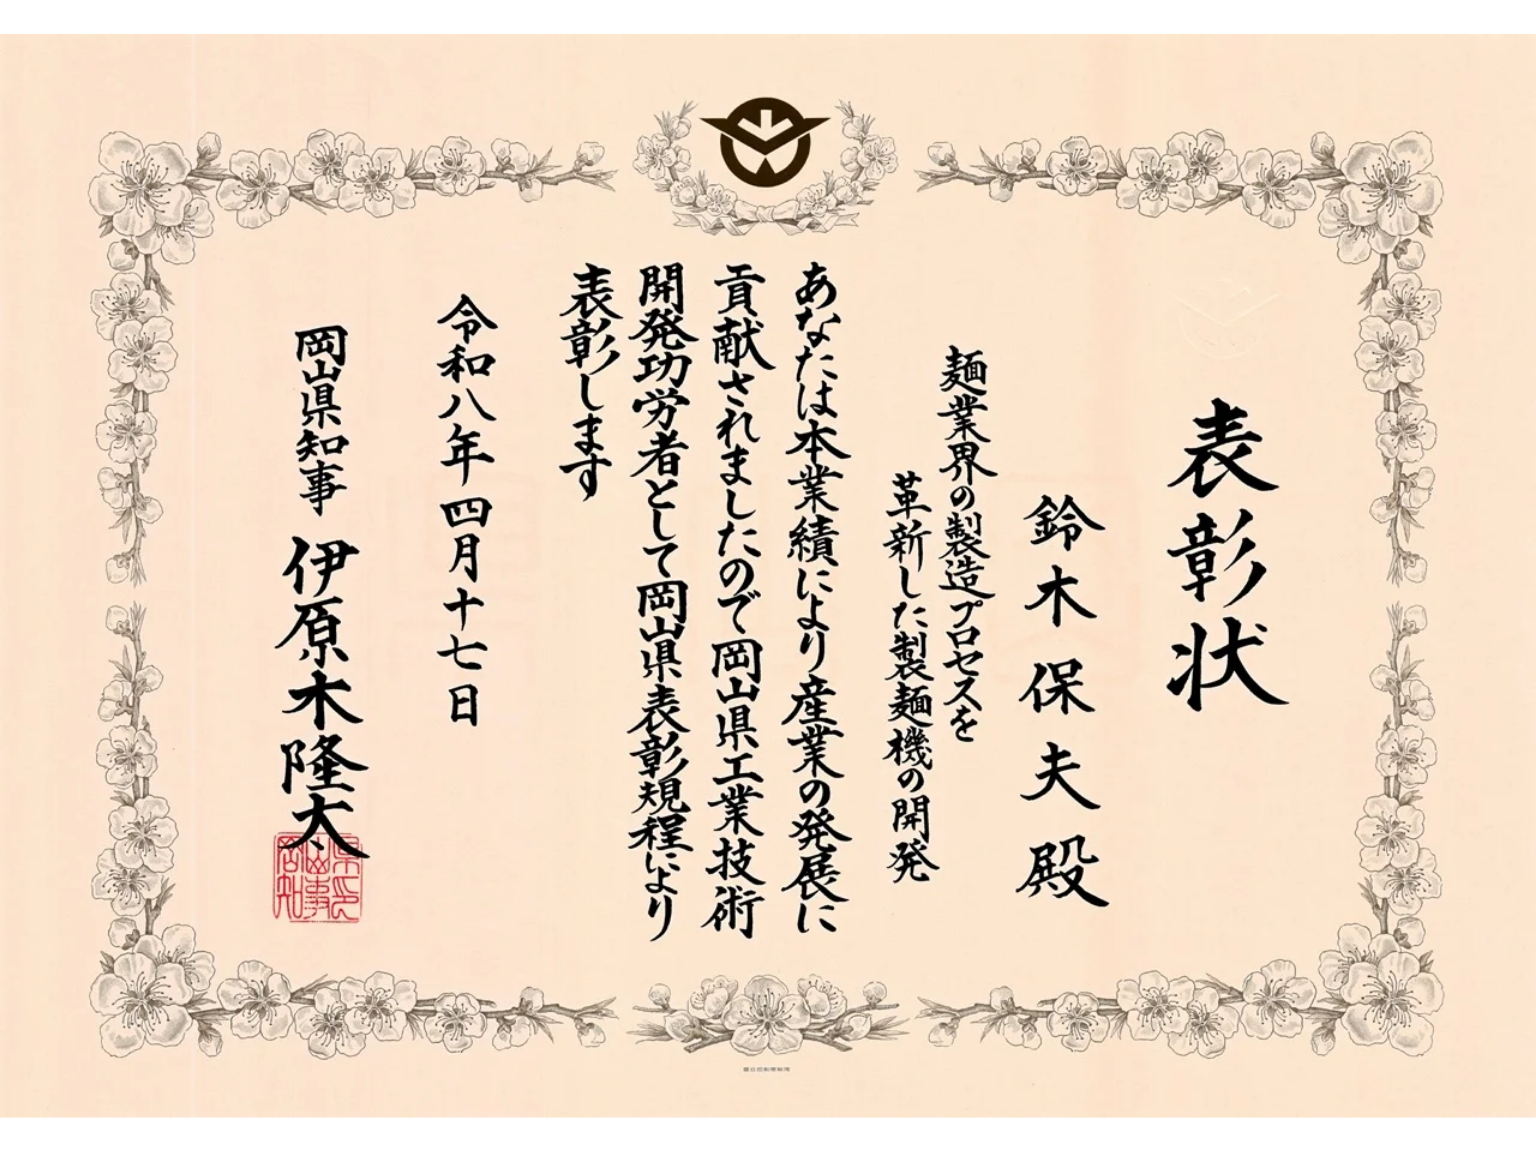 表彰状
鈴木保夫殿
麺業界の製造プロセスを
革新した製麺機の開発
あなたは本業績により産業の発展に
貢献されましたので岡山県工業技術
開発功労者として岡山県表彰規程により
表彰します
令和八年四月十七日
岡山県知事 伊原木隆太